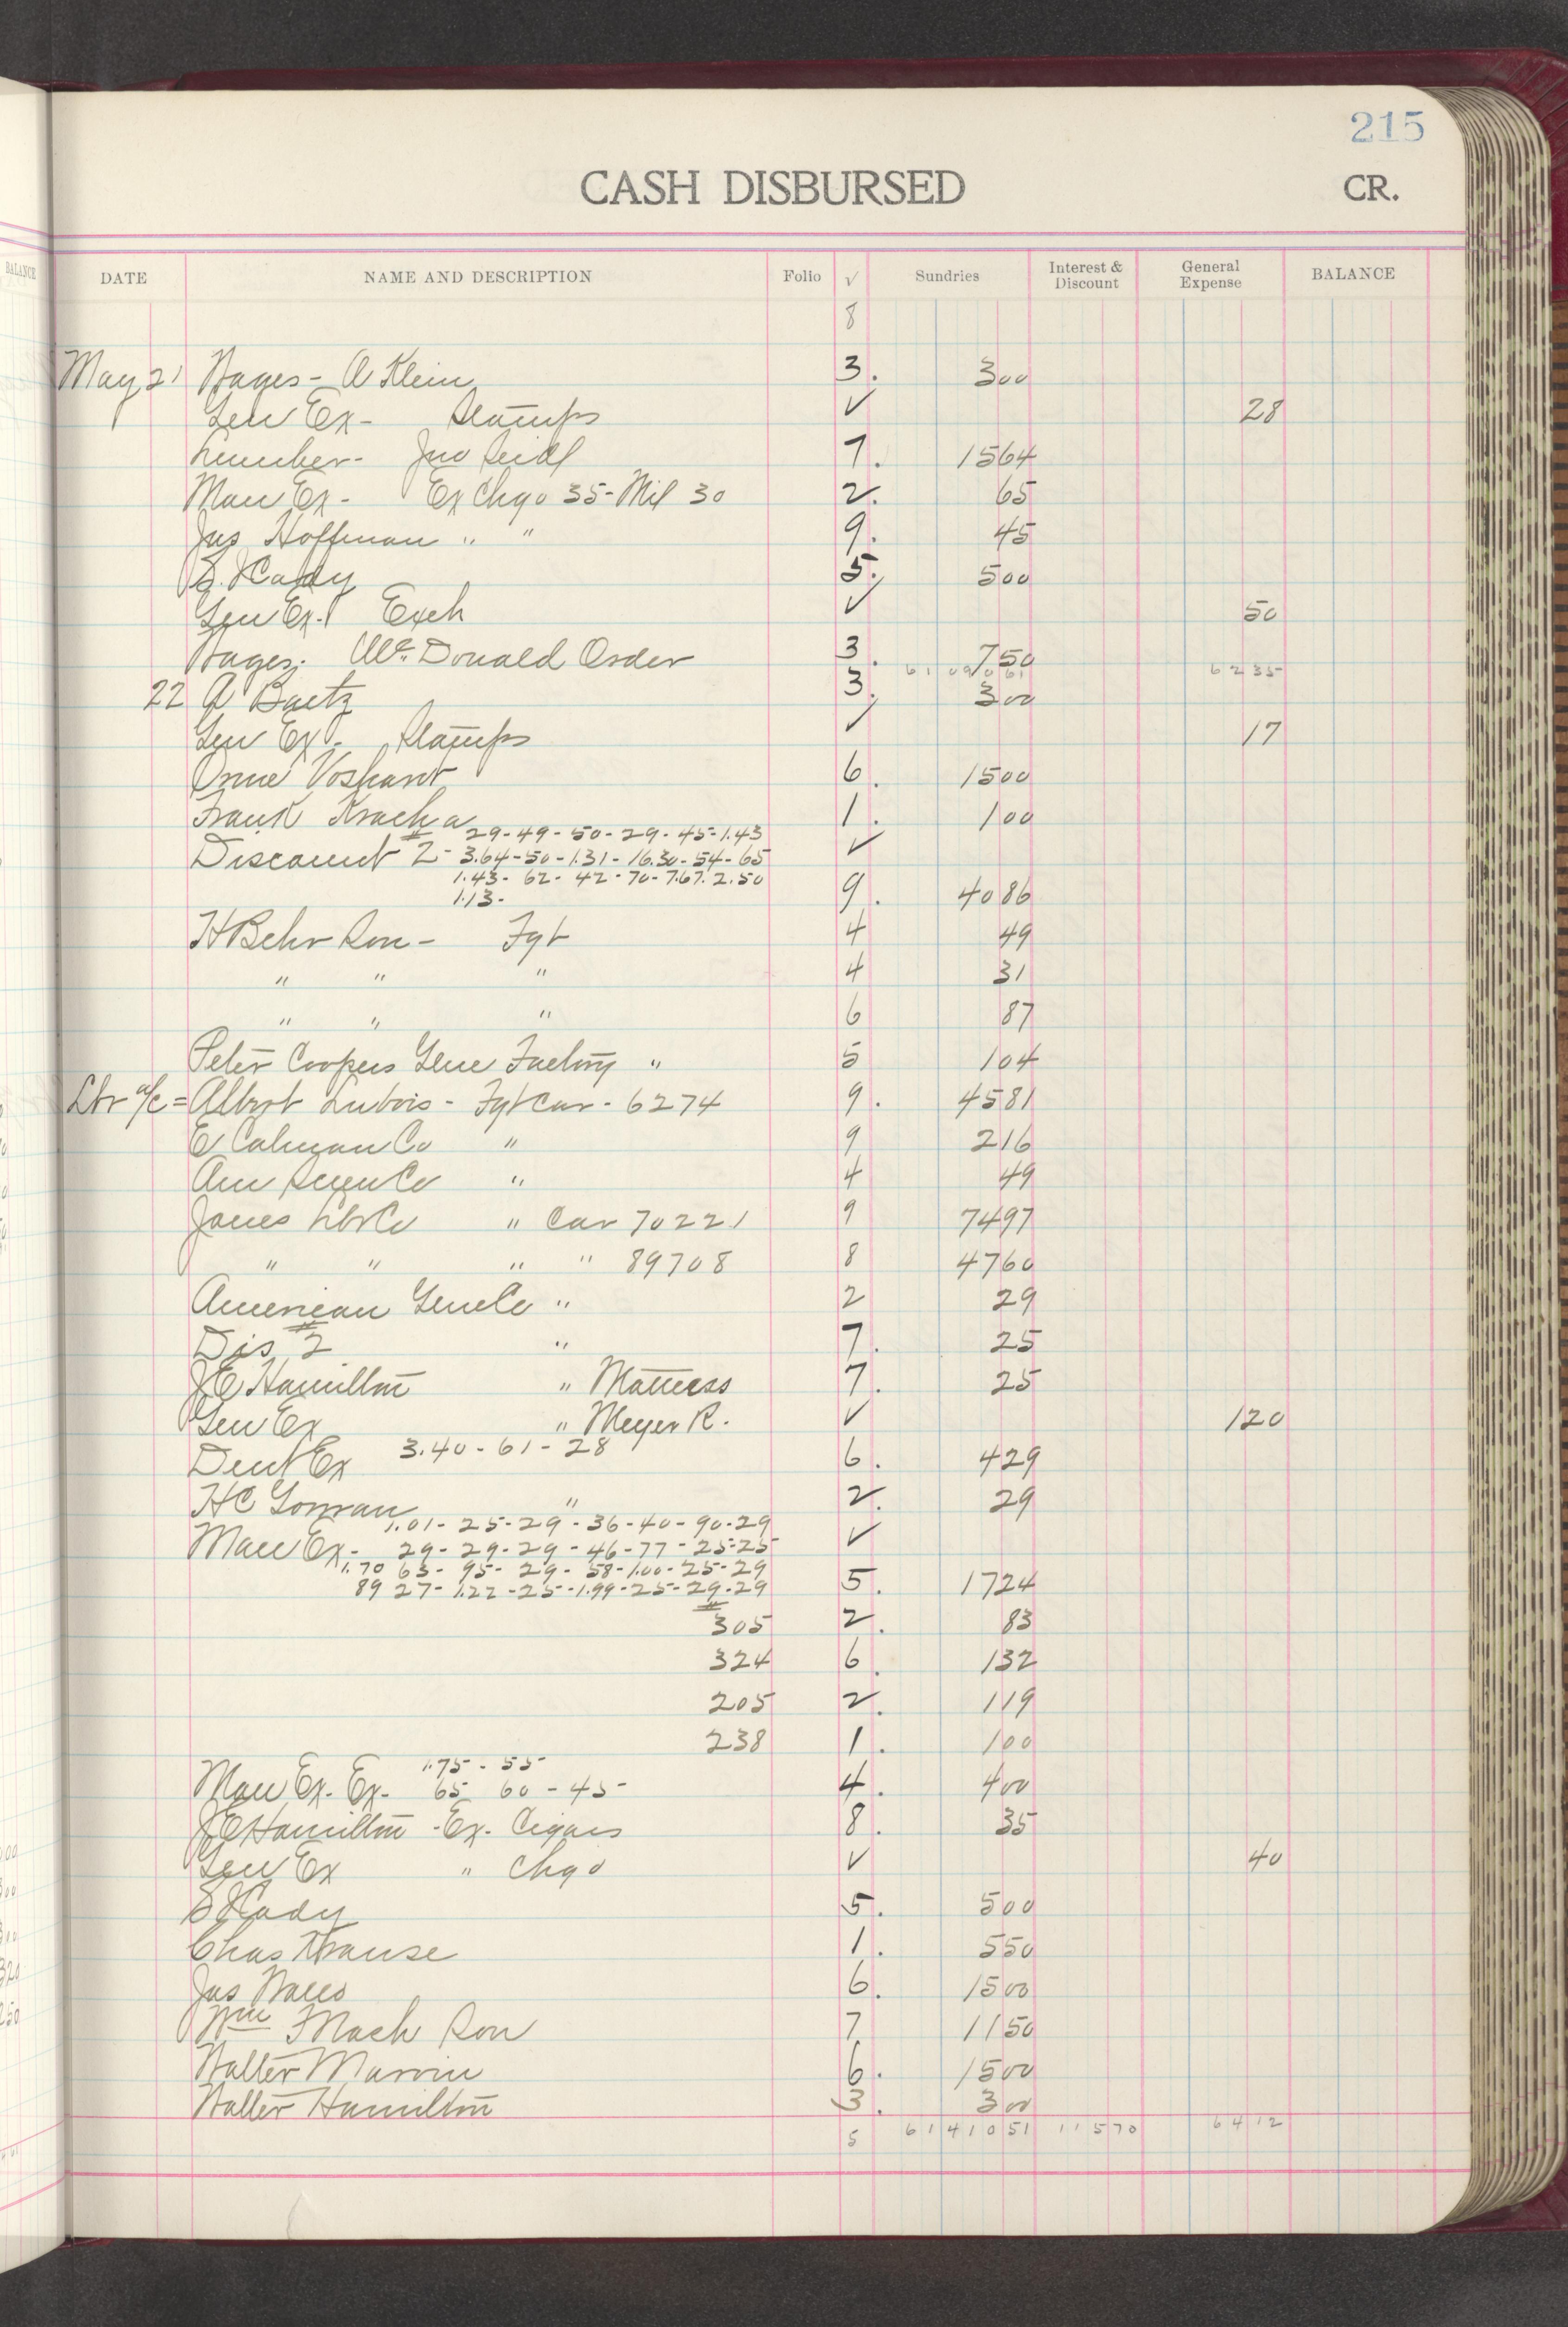 215
CASH DISBURSED CR.
DATE NAME AND DESCRIPTION Folio √ Sundries Interest & Discount General Expense BALANCE
8
May 21 Wages - A Klein 3. 300
Gen Ex - Stamps ✓ 28
Lumber - Jno Seidl 7. 1564
Man Ex - Ex Chgo 35 - Mil 30 2. 65
Jas Hoffman " " 9. 45
S. J Cady 5. 500
Gen Ex. Exch ✓ 50
Wages. Mc Donald Order 3. 750
6109061 6235
22 A Baetz 3. 300
Gen Ex - Stamps ✓ 17
Orrie Voshardt 6. 1500
Frank Kracha 1. 100
29 - 49 - 50 - 29 - 45 - 1.43
Discount #2 - 3.64 - 50 - 1.31 - 16.30 - 54 - 65 ✓
1.43 - 62 - 42 - 70 - 7.67. 2.50
1.13 - 9. 4086
H Behr Son - Fgt 4 49
" " " 4 31
" " " 6 87
Peter Coopers Glue Factory " 5 104
Lbr a/c = Albert Dubois - Fgt Car - 6274 9. 4581
E Calman Co " 9 216
Am Screw Co " 4 49
Jones Lbr Co " Car 70221 9 7497
" " " " 89708 8 4760
American Glue Co " 2 29
Dis #2 " 7. 25
J E Hamilton " Mattress 7. 25
Gen Ex " Meyer R. ✓ 120
Dent Ex 3.40 - 61 - 28 6. 429
H C Gorman " 2. 29
1.01 - 25 - 29 - 36 - 40 - 90 - 29
Man Ex - 29 - 29 - 29 - 46 - 77 - 25 - 25 ✓
1.70 63 - 95 - 29 - 58 - 1.00 - 25 - 29
89 27 - 1.22 - 25 - 1.99 - 25 - 29 - 29 5. 1724
#305 2. 83
324 6. 132
205 2. 119
238 1. 100
1.75 - 55
Man Ex. Ex - 65 60 - 45 - 4. 400
J E Hamilton - Ex. Cigars 8. 35
Gen Ex " Chgo ✓ 40
S J Cady 5. 500
Chas Krause 1. 550
Jas 6. 1500
Wm F Mach Son 7 1150
Walter Marvin 6. 1500
Walter Hamilton 3. 300
5 6141051 11570 6412